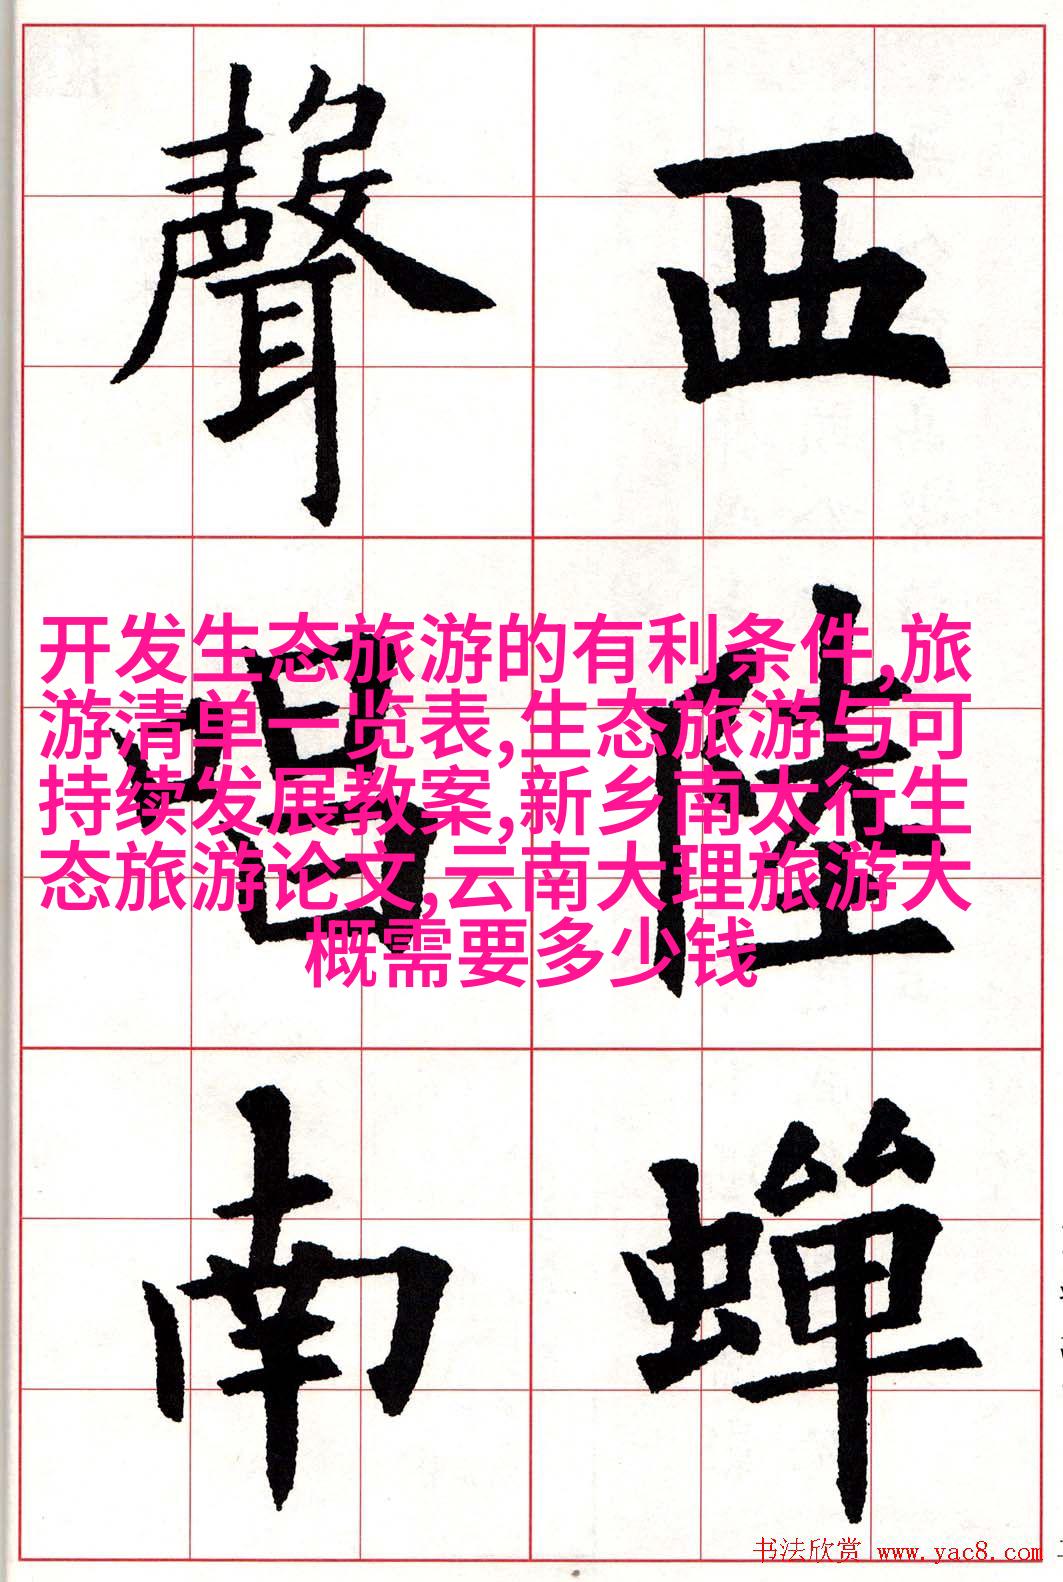 西陸蟬
聲唱南
开发生态旅游的有利条件,旅
游清单一览表,生态旅游与可
持续发展教案,新乡南太行生
态旅游论文,云南大理旅游大
概需要多少钱
书法欣赏 www.yac8.com